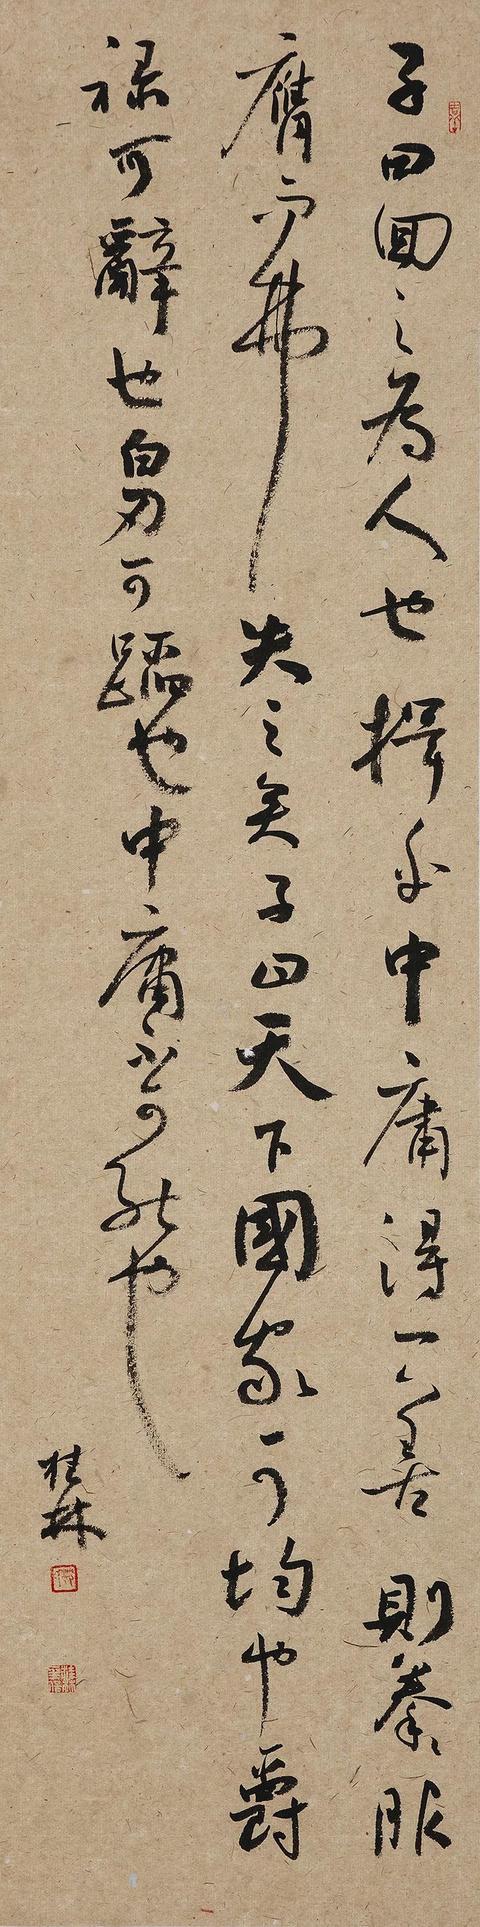 子曰回之為人也擇乎中庸得一善則拳〻服
膺而弗失之矣子曰天下國家可均也爵
祿可辭也白刃可蹈也中庸不可能也
桂林